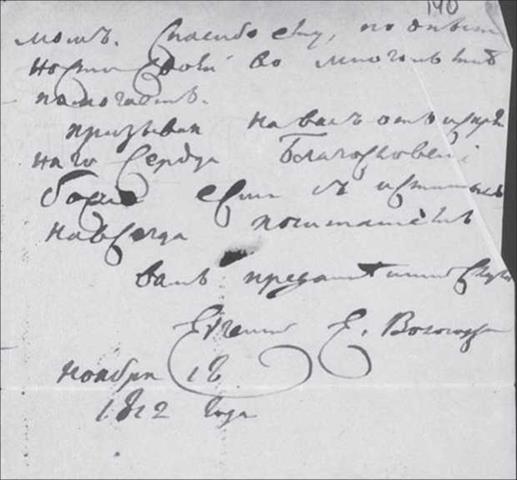 140
момъ. Спасибо ему, по опыт
ности своей во многомъ мнѣ
помогаетъ.
призывая на васъ отъ искрен
наго сердца Благословенiе
Божiе есмь съ истиннымъ
навсегда почитанiемъ
вамъ преданнѣйшiй слуга
Евгенiй Е. Вологодск
ноября 18
1812 года